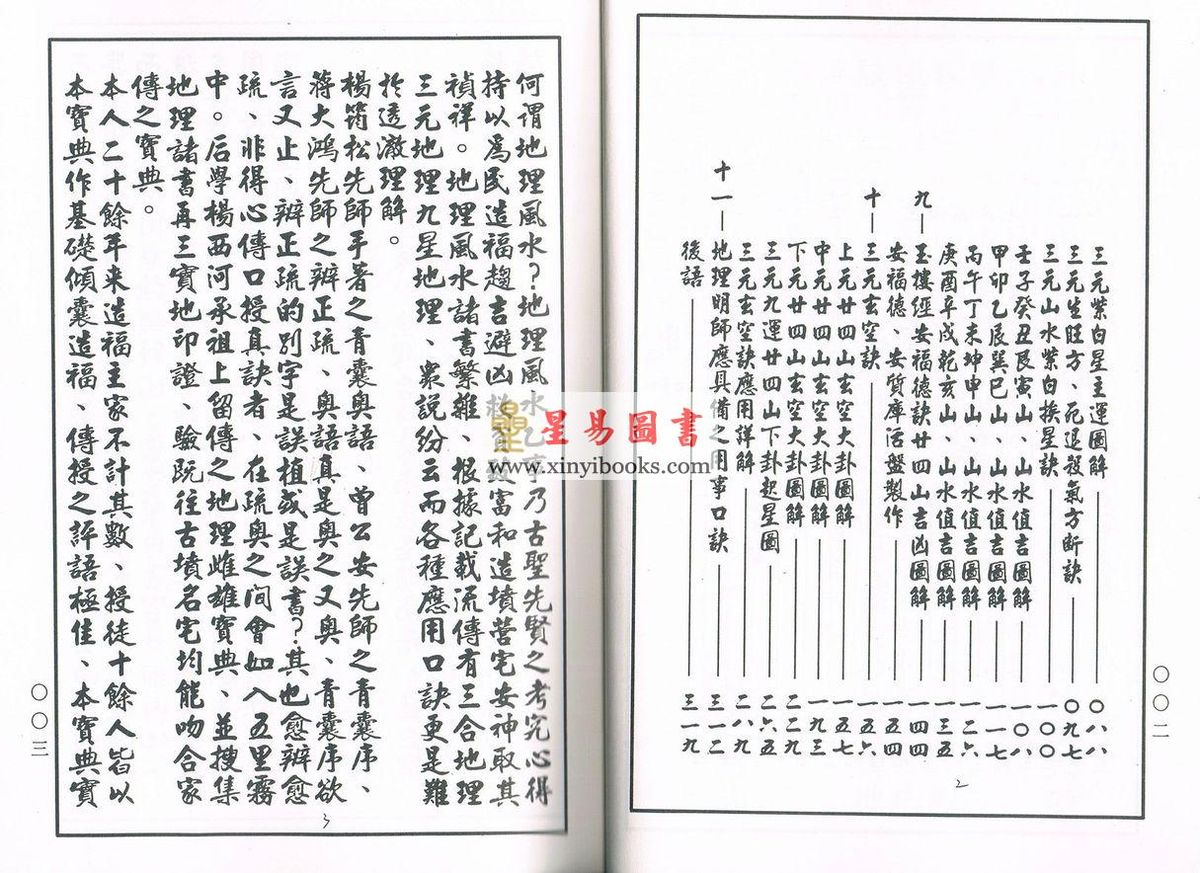 三元紫白星主運圖解 〇八八
三元生旺方、死退殺氣方斷訣 〇九七
三元山水紫白挨星訣 一〇〇
壬子癸丑艮寅山、山水值吉圖解 一〇八
甲卯乙辰巽巳山、山水值吉圖解 一一七
丙午丁未坤申山、山水值吉圖解 一二六
庚酉辛戌乾亥山、山水值吉圖解 一三五
九 玉樓經安福德訣廿四山吉凶圖解 一四四
安福德、安質庫活盤製作 一五四
十 三元玄空訣 一五六
上元廿四山玄空大卦圖解 一五七
中元廿四山玄空大卦圖解 一九三
下元廿四山玄空大卦圖解 二二九
三元九運廿四山下卦起星圖 二六五
三元玄空訣應用詳解 二八九
十一 地理明師應具備之用事口訣 三一二
後語 三一九
〇〇二
2
何謂地理風水?地理風水乙事乃古聖先賢之考究心得
持以為民造福趨吉避凶救貧致富和造墳營宅安神取其
禎祥。地理風水諸書繁雜、根據記載流傳有三合地理
三元地理九星地理、眾說紛云而各種應用口訣更是難
於透澈理解。
楊筠松先師手著之青囊奧語、曾公安先師之青囊序、
蔣大鴻先師之辨正疏、奧語真是奧之又奧、青囊序欲
言又止、辨正疏的別字是誤植或是誤書?其也愈辨愈
疏、非得心傳口授真訣者、在疏奧之間會如入五里霧
中。后學楊西河承祖上留傳之地理雌雄寶典、並搜集
地理諸書再三實地印證、驗既往古墳名宅均能吻合家
傳之寶典。
本人二十餘年来造福主家不計其數、授徒十餘人皆以
本寶典作基礎傾囊造福、傳授之評語極佳、本寶典實
〇〇三
3
星易圖書
www.xinyibooks.com